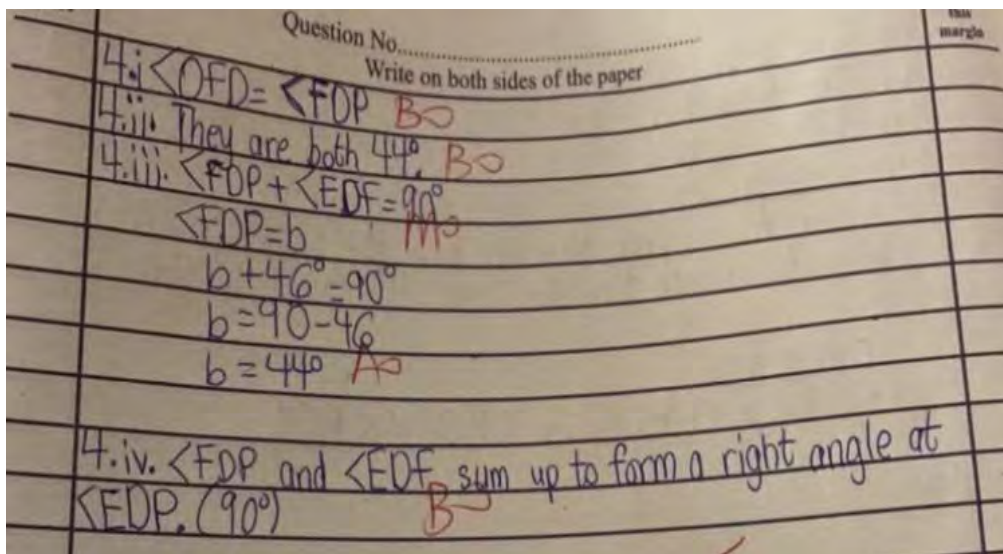 Question No.
this
margin
Write on both sides of the paper
4.i <OFD = <FDP B0
4.ii. They are both 44°. B0
4.iii. <FDP + <EDF = 90°
<FDP = b M0
b + 46° = 90°
b = 90 - 46
b = 44° A0
4.iv. <FDP and <EDF sum up to form a right angle at
<EDP. (90°) B0